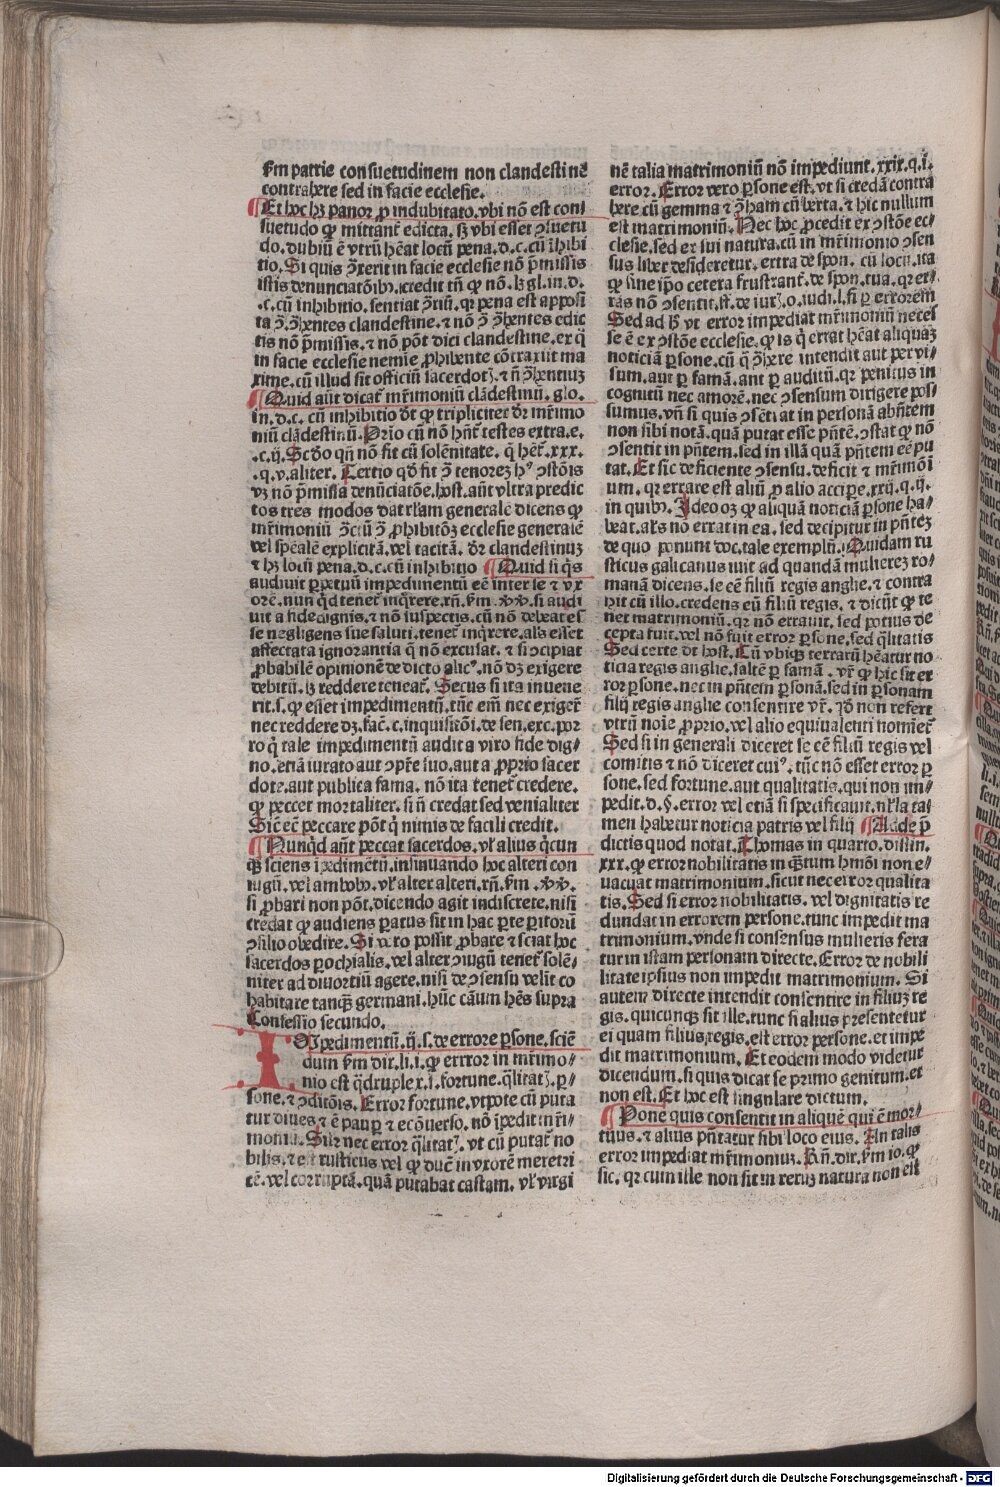 fm patrie consuetudinem non clandestinē
contrahere sed in facie ecclesie.
¶ Et hoc hꝫ panor. ꝓ indubitato. vbi nō est con/
suetudo ꝙ mittant᷑ edicta. sꝫ vbi esset ↄsuetu
do. dubiū ē vtrū hēat locū pena. d. c. cū īhibi
tio. Si quis ↄ̄xerit in facie ecclesie nō p̄missis
istis denunciatōibꝰ. credit tn̄ ꝙ nō. lꝫ gl. in. d.
.c. cū inhibitio. sentiat ↄ̄riū. qꝛ pena est apposi
ta ↄ̄. ↄ̄hentes clandestine. ⁊ nō ↄ̄ ↄ̄hentes edic
tis nō p̄missis. ⁊ nō pōt dici clandestine. ex quo
in facie ecclesie nemīe ꝓhibente cōtraxit ma
xime. cū illud sit officiū sacerdotꝭ. ⁊ nō ↄ̄hentiuꝫ
¶ Quid aūt dicat᷑ mr̄imoniū clādestinū. glo.
in. d. c. cū inhibitio dt̄ ꝙ tripliciter dr̄ mr̄imo
niū clādestinū. Prīo cū nō hn̄t testes extra. e.
.c. ij. Scd̄o qn̄ nō fit cū solēnitate. ꝗ hēt᷑. xxx.
.q. v. aliter. Tertio qd̄ fit ↄ̄ tenoreꝫ hꝰ ↄstōis
vꝫ nō p̄missa denūciatōe. host. aūt vltra predic
tos tres modos dat rl̄am generalē dicens ꝙ
mr̄imoniū ↄ̄ctū ↄ̄ ꝓhibitōꝫ ecclesie generalē
vel sp̄ealē explicitā. vel tacitā. dr̄ clandestinuꝫ
⁊ hꝫ locū pena. d. c. cū inhibitio ¶ Quid si ꝗs
audiuit ꝑpetuū impedimentū eē inter se ⁊ vx
orē. nun qd̄ tenet᷑ inꝗrere. rn̄. fm. ꝟꝟ. si audi
uit a fide dignis. ⁊ nō suspectis. cū nō debeat es
se negligens sue saluti. tenet᷑ inꝗrere. als esset
affectata ignorantia ꝗ nō excusat. ⁊ si ↄcipiat
ꝓbabilē opinionē de dicto alicꝰ. nō dꝫ exigere
debitū. lꝫ reddere teneat᷑. Secus si ita inuene
rit. s. ꝙ esset impedimentū. tūc em̄ nec exiget᷑
nec reddere dꝫ. fac̄t. c. inquisitōi. de sen. exc. por
ro ꝗ tale impedimentū audit a viro fide dig/
no. etiā iurato aut ↄpr̄e suo. aut a ꝓprio sacer
dote. aut publica fama. nō ita tenet᷑ credere.
ꝙ peccet mortaliter. si nō credat sed venialiter
Sic̄ eē peccare pōt ꝗ nimis de facili credit.
¶ Nunqd̄ aūt peccat sacerdos. vl̓ alius ꝗcun
qꝫ sciens īpedimētū. insinuando hoc alteri con
iugū. vel ambobꝰ. vl̓ alter alteri. rn̄. fm. ꝟꝟ.
si ꝓbari non pōt. dicendo agit indiscrete. nisi
credat ꝙ audiens ꝑatus sit in hac ꝑte ꝑitorū
ↄsilio obedire. Si vero possit ꝓbare ⁊ sciat hoc
sacerdos ꝑochialis. vel alter ↄiugū tenet᷑ solē/
niter ad diuortiū agere. nisi de ↄsensu velit co
habitare tanꝗꝫ germani. hūc cāum hēs supra
Confessio secundo.
IMpedimentū. ij. s. de errore ꝑsone. sciē
dum fm dit. li. i. ꝙ errror in mr̄imo/
nio est qd̄ruplex. i. fortune. qlitatꝭ. ꝑ/
sone. ⁊ ↄditōis. Error fortune. vtpote cū puta
tur diues ⁊ ē pauꝑ ⁊ ecōuerso. nō īpedit mr̄i/
moniū. Silr̄ nec error qlitatꝭ. vt cū putat᷑ no
bilis. ⁊ est rusticus vel ꝙ ducē in vxorē meretri
cē. vel corruptā. quā putabat castam. vl̓ virgi
nē talia matrimoniū nō impediunt. xxix. q. i.
error. Error vero ꝑsone est. vt si credā contra
here cū gemma ⁊ ↄ̄ham cū berta. ⁊ hic nullum
est matrimoniū. Nec hoc ꝓcedit ex ↄstōe ec/
clesie. sed ex sui natura. cū in mr̄imonio ↄsen
sus liber desideretur. extra de spon. cū locū. ita
ꝙ sine ip̄o cetera frustrant᷑. de spon. tua. qꝛ er/
rās nō ↄsentit. ff. de iurꝭ. o. iudi. l. si ꝑ errorem
Sed ad hꝫ vt error impediat mr̄imoniū neces
se ē ex ↄstōe ecclesie. ꝙ is ꝗ errat hēat aliquaꝫ
noticiā ꝑsone. cū ꝗ ↄ̄here intendit aut per vi/
sum. aut ꝑ famā. aut ꝑ auditū. qꝛ penitus in
cognitū nec amorē. nec ↄsensum dirigere pos/
sumus. vn̄ si quis ↄsētiat in personā abn̄tem
non sibi notā. quā putat esse pn̄tē. ↄstat ꝙ nō
ↄsentit in pn̄tem. sed in illā quā pn̄tem eē pu
tat. Et sic deficiente ↄsensu. deficit ⁊ mr̄imōi
um. qꝛ errare est aliū ꝓ alio accipe. xxij. q. ij.
in quibꝰ. Ideo oꝫ ꝙ aliquā noticiā ꝑsone ha/
beat. als nō errat in ea. sed decipitur in pn̄teꝫ
de quo ponunt doc. tale exemplū. Quidam ru
sticus galicanus iuit ad quandā muliereꝫ ro/
manā dicens. se eē filiū regis anglie. ⁊ contra
hit cū illo. credens eū filiū regis. ⁊ dicūt ꝙ te
net matrimoniū. qꝛ nō errauit. sed potius de
cepta fuit. vel nō fuit error ꝑsone. sed qlitatis
Sed certe dt̄ host. Cū vbiqꝫ terrarū hēatur no
ticia regis anglie. saltē ꝑ famā. vr̄ ꝙ hic sit er
ror ꝑsone. nec in pn̄tem ꝑsonā. sed in ꝑsonam
filij regis anglie consentire vr̄. Qd̄ non refert
vtrū noīe ꝓprio. vel alio equiualenti nomīet᷑
Sed si in generali diceret se eē filiū regis vel
comitis ⁊ nō diceret cuiꝰ. tūc nō esset error ꝑ
sone. sed fortune. aut qualitatis. qui non im/
pedit. d. §. error vel etiā si specificauit. nl̓la ta/
men habetur noticia patris vel filij ¶ Adde p̄
dictis quod notat. Thomas in quarto. distin.
xxx. ꝙ error nobilitatis in qꝫtum hm̄oi non e/
uacuat matrimonium. sicut nec error qualita
tis. Sed si error nobilitatis. vel dignitatis re
dundat in errorem persone. tunc impedit ma
trimonium. vnde si consensus mulieris fera
tur in istam personam directe. Error de nobili
litate ipsius non impedit matrimonium. Si
autem directe intendit consentire in filiuꝫ re
gis. quicunqꝫ sit ille. tunc si alius presentetur
ei quam filius regis. est error persone. et impe
dit matrimonium. Et eodem modo videtur
dicendum. si quis dicat se primo genitum. et
non est. Et hoc est singulare dictum.
¶ Pone quis consentit in aliquē qui ē mor/
tuus. ⁊ alius pn̄tatur sibi loco eius. An talis
error impediat mr̄imoniuꝫ. Rn̄. dit. fm io. ꝙ
sic. qꝛ cum ille non sit in reruꝫ natura non est
Digitalisierung gefördert durch die Deutsche Forschungsgemeinschaft - DFG